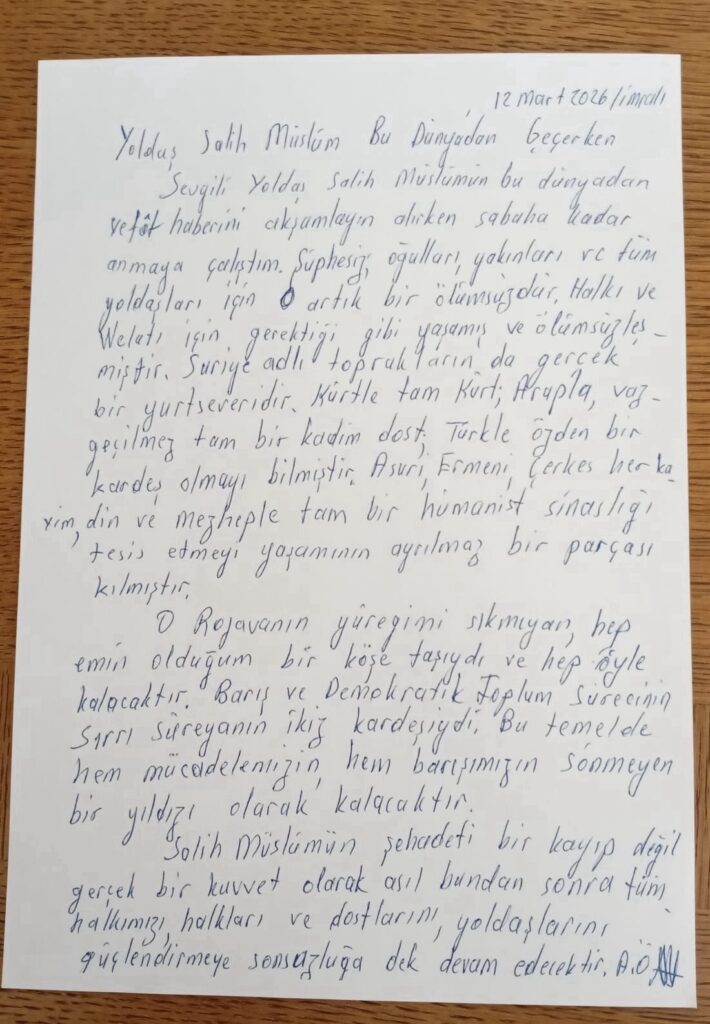 12 Mart 2026/imralı
Yoldaş Salih Müslüm Bu Dünyadan Geçerken
Sevgili Yoldaş Salih Müslümün bu dünyadan
vefât haberini akşamlayın alırken sabaha kadar
anmaya çalıştım. Şüphesiz, oğulları, yakınları ve tüm
yoldaşları için O artık bir ölümsüzdür. Halkı ve
Welatı için gerektiği gibi yaşamış ve ölümsüzleş-
miştir. Suriye adlı toprakların da gerçek
bir yurtseveridir. Kürtle tam Kürt; Arapla, vaz-
geçilmez tam bir kadim dost; Türkle özden bir
kardeş olmayı bilmiştir. Asuri, Ermeni, Çerkes her ka-
vim, din ve mezheple tam bir hümanist sinaslığı
tesis etmeyi yaşamının ayrılmaz bir parçası
kılmıştır.
O Rojavanın yüreğimi sıkmıyan, hep
emin olduğum bir köşe taşıydı ve hep öyle
kalacaktır. Barış ve Demokratik Toplum Sürecinin
Sırrı Süreyanın ikiz kardeşiydi. Bu temelde
hem mücadelemizin, hem barışımızın sönmeyen
bir yıldızı olarak kalacaktır.
Salih Müslümün şehadeti bir kayıp değil
gerçek bir kuvvet olarak asıl bundan sonra tüm
halkımızı, halkları ve dostlarını, yoldaşlarını
güçlendirmeye sonsuzluğa dek devam edecektir. A.Ö